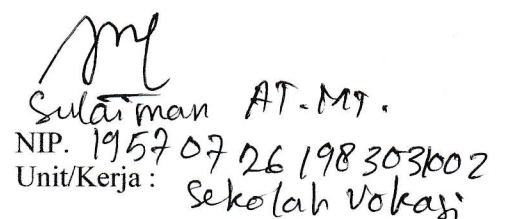 Sulaiman AT. MT.
NIP. 19570726 198303 1002
Unit/Kerja : Sekolah Vokasi